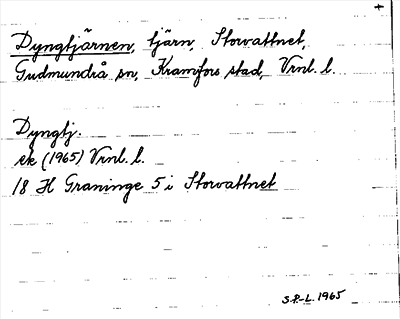 +
Dyngtjärnen, tjärn, Storvattnet,
Gudmundrå sn, Kramfors stad, Vrnl. l.
Dyngtj.
ek (1965) Vrnl. l.
18 H Graninge 5 i Storvattnet
S.P.-L. 1965